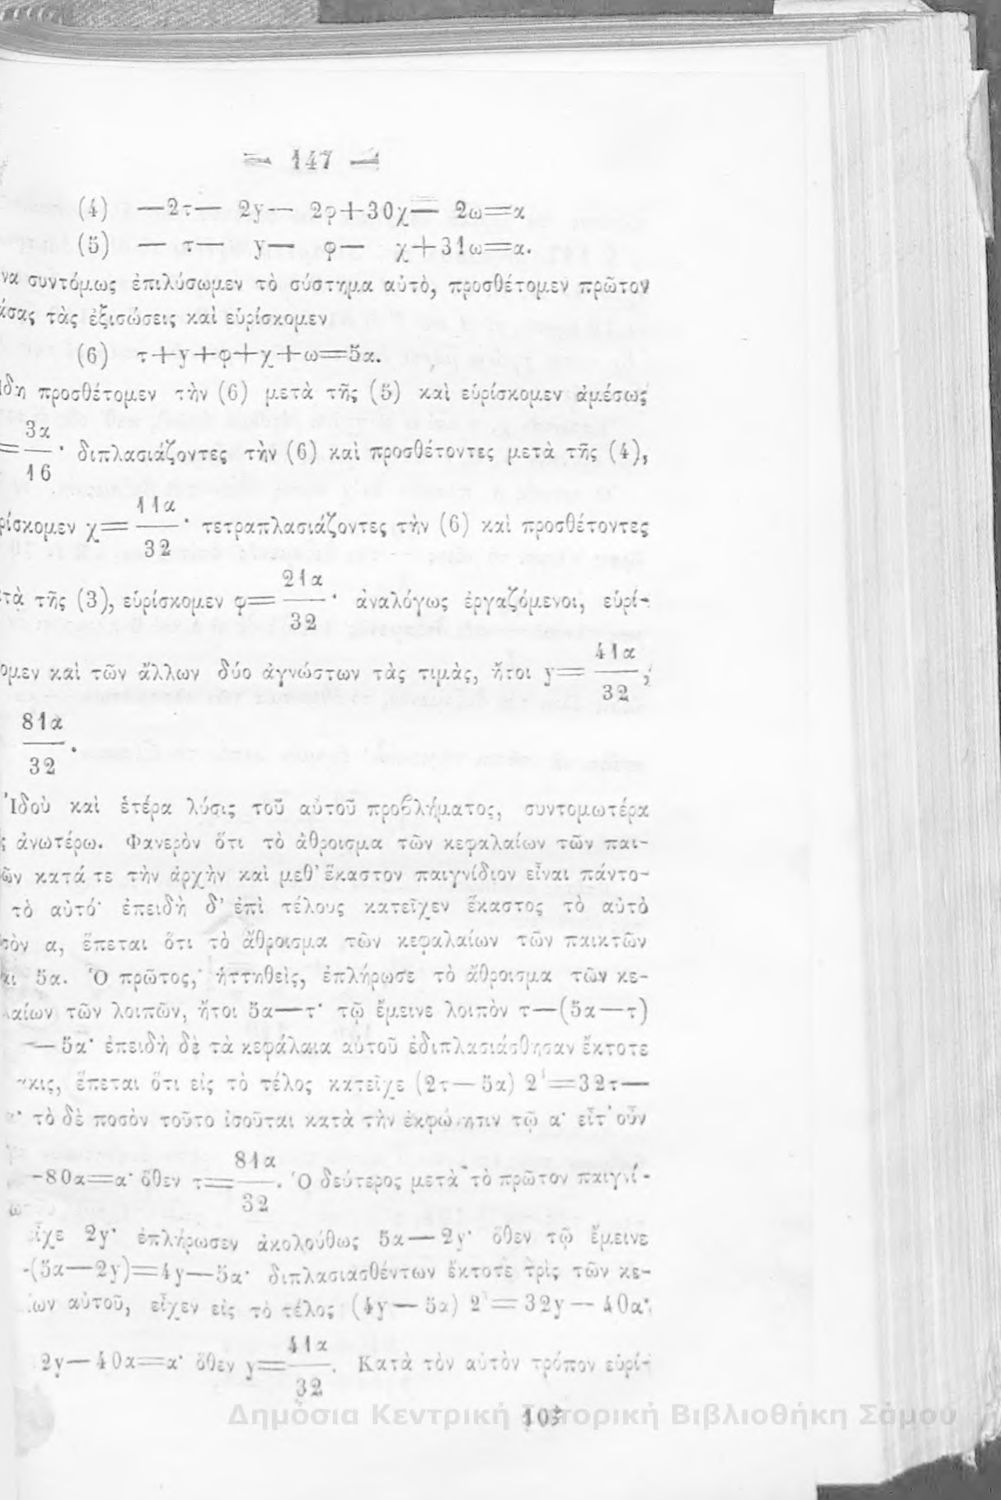 — 147 —
(4) —2τ— 2y— 2φ+30χ— 2ω=α
(5) — τ— y— φ— χ+31ω=α.
να συντόμως ἐπιλύσωμεν τὸ σύστημα αὐτὸ, προσθέτομεν πρῶτον
τὰς ἐξισώσεις καὶ εὑρίσκομεν
(6) τ+y+φ+χ+ω=5α.
προσθέτομεν τὴν (6) μετὰ τῆς (5) καὶ εὑρίσκομεν ἀμέσως
=3α/16· διπλασιάζοντες τὴν (6) καὶ προσθέτοντες μετὰ τῆς (4),
ρίσκομεν χ=11α/32· τετραπλασιάζοντες τὴν (6) καὶ προσθέτοντες
τὰ τῆς (3), εὑρίσκομεν φ=21α/32· ἀναλόγως ἐργαζόμενοι, εὑρί-
ομεν καὶ τῶν ἄλλων δύο ἀγνώστων τὰς τιμὰς, ἤτοι y=41α/32,
81α/32.
Ἰδοὺ καὶ ἑτέρα λύσις τοῦ αὐτοῦ προβλήματος, συντομωτέρα
ς ἀνωτέρω. Φανερὸν ὅτι τὸ ἄθροισμα τῶν κεφαλαίων τῶν παι-
ῶν κατά τε τὴν ἀρχὴν καὶ μεθ' ἕκαστον παιγνίδιον εἶναι πάντο-
τὸ αὐτό· ἐπειδὴ δ' ἐπὶ τέλους κατεῖχεν ἕκαστος τὸ αὐτὸ
σὸν α, ἕπεται ὅτι τὸ ἄθροισμα τῶν κεφαλαίων τῶν παικτῶν
αι 5α. Ὁ πρῶτος, ἡττηθεὶς, ἐπλήρωσε τὸ ἄθροισμα τῶν κε-
λαίων τῶν λοιπῶν, ἤτοι 5α—τ· τῷ ἔμεινε λοιπὸν τ—(5α—τ)
— 5α· ἐπειδὴ δὲ τὰ κεφάλαια αὐτοῦ ἐδιπλασιάσθησαν ἔκτοτε
κις, ἕπεται ὅτι εἰς τὸ τέλος κατεῖχε (2τ—5α) 2⁴=32τ—
τὸ δὲ ποσὸν τοῦτο ἰσοῦται κατὰ τὴν ἐκφώνησιν τῷ α· εἶτ' οὖν
-80α=α· ὅθεν τ=81α/32. Ὁ δεύτερος μετὰ τὸ πρῶτον παιγνί-
εἶχε 2y· ἐπλήρωσεν ἀκολούθως 5α—2y· ὅθεν τῷ ἔμεινε
-(5α—2y)=4y—5α· διπλασιασθέντων ἔκτοτε τρὶς τῶν κε-
ίων αὐτοῦ, εἶχεν εἰς τὸ τέλος (4y—5α) 2³=32y—40α·
2y—40α=α· ὅθεν y=41α/32. Κατὰ τὸν αὐτὸν τρόπον εὑρί-
10*
Δημόσια Κεντρική Ιστορική Βιβλιοθήκη Σάμου